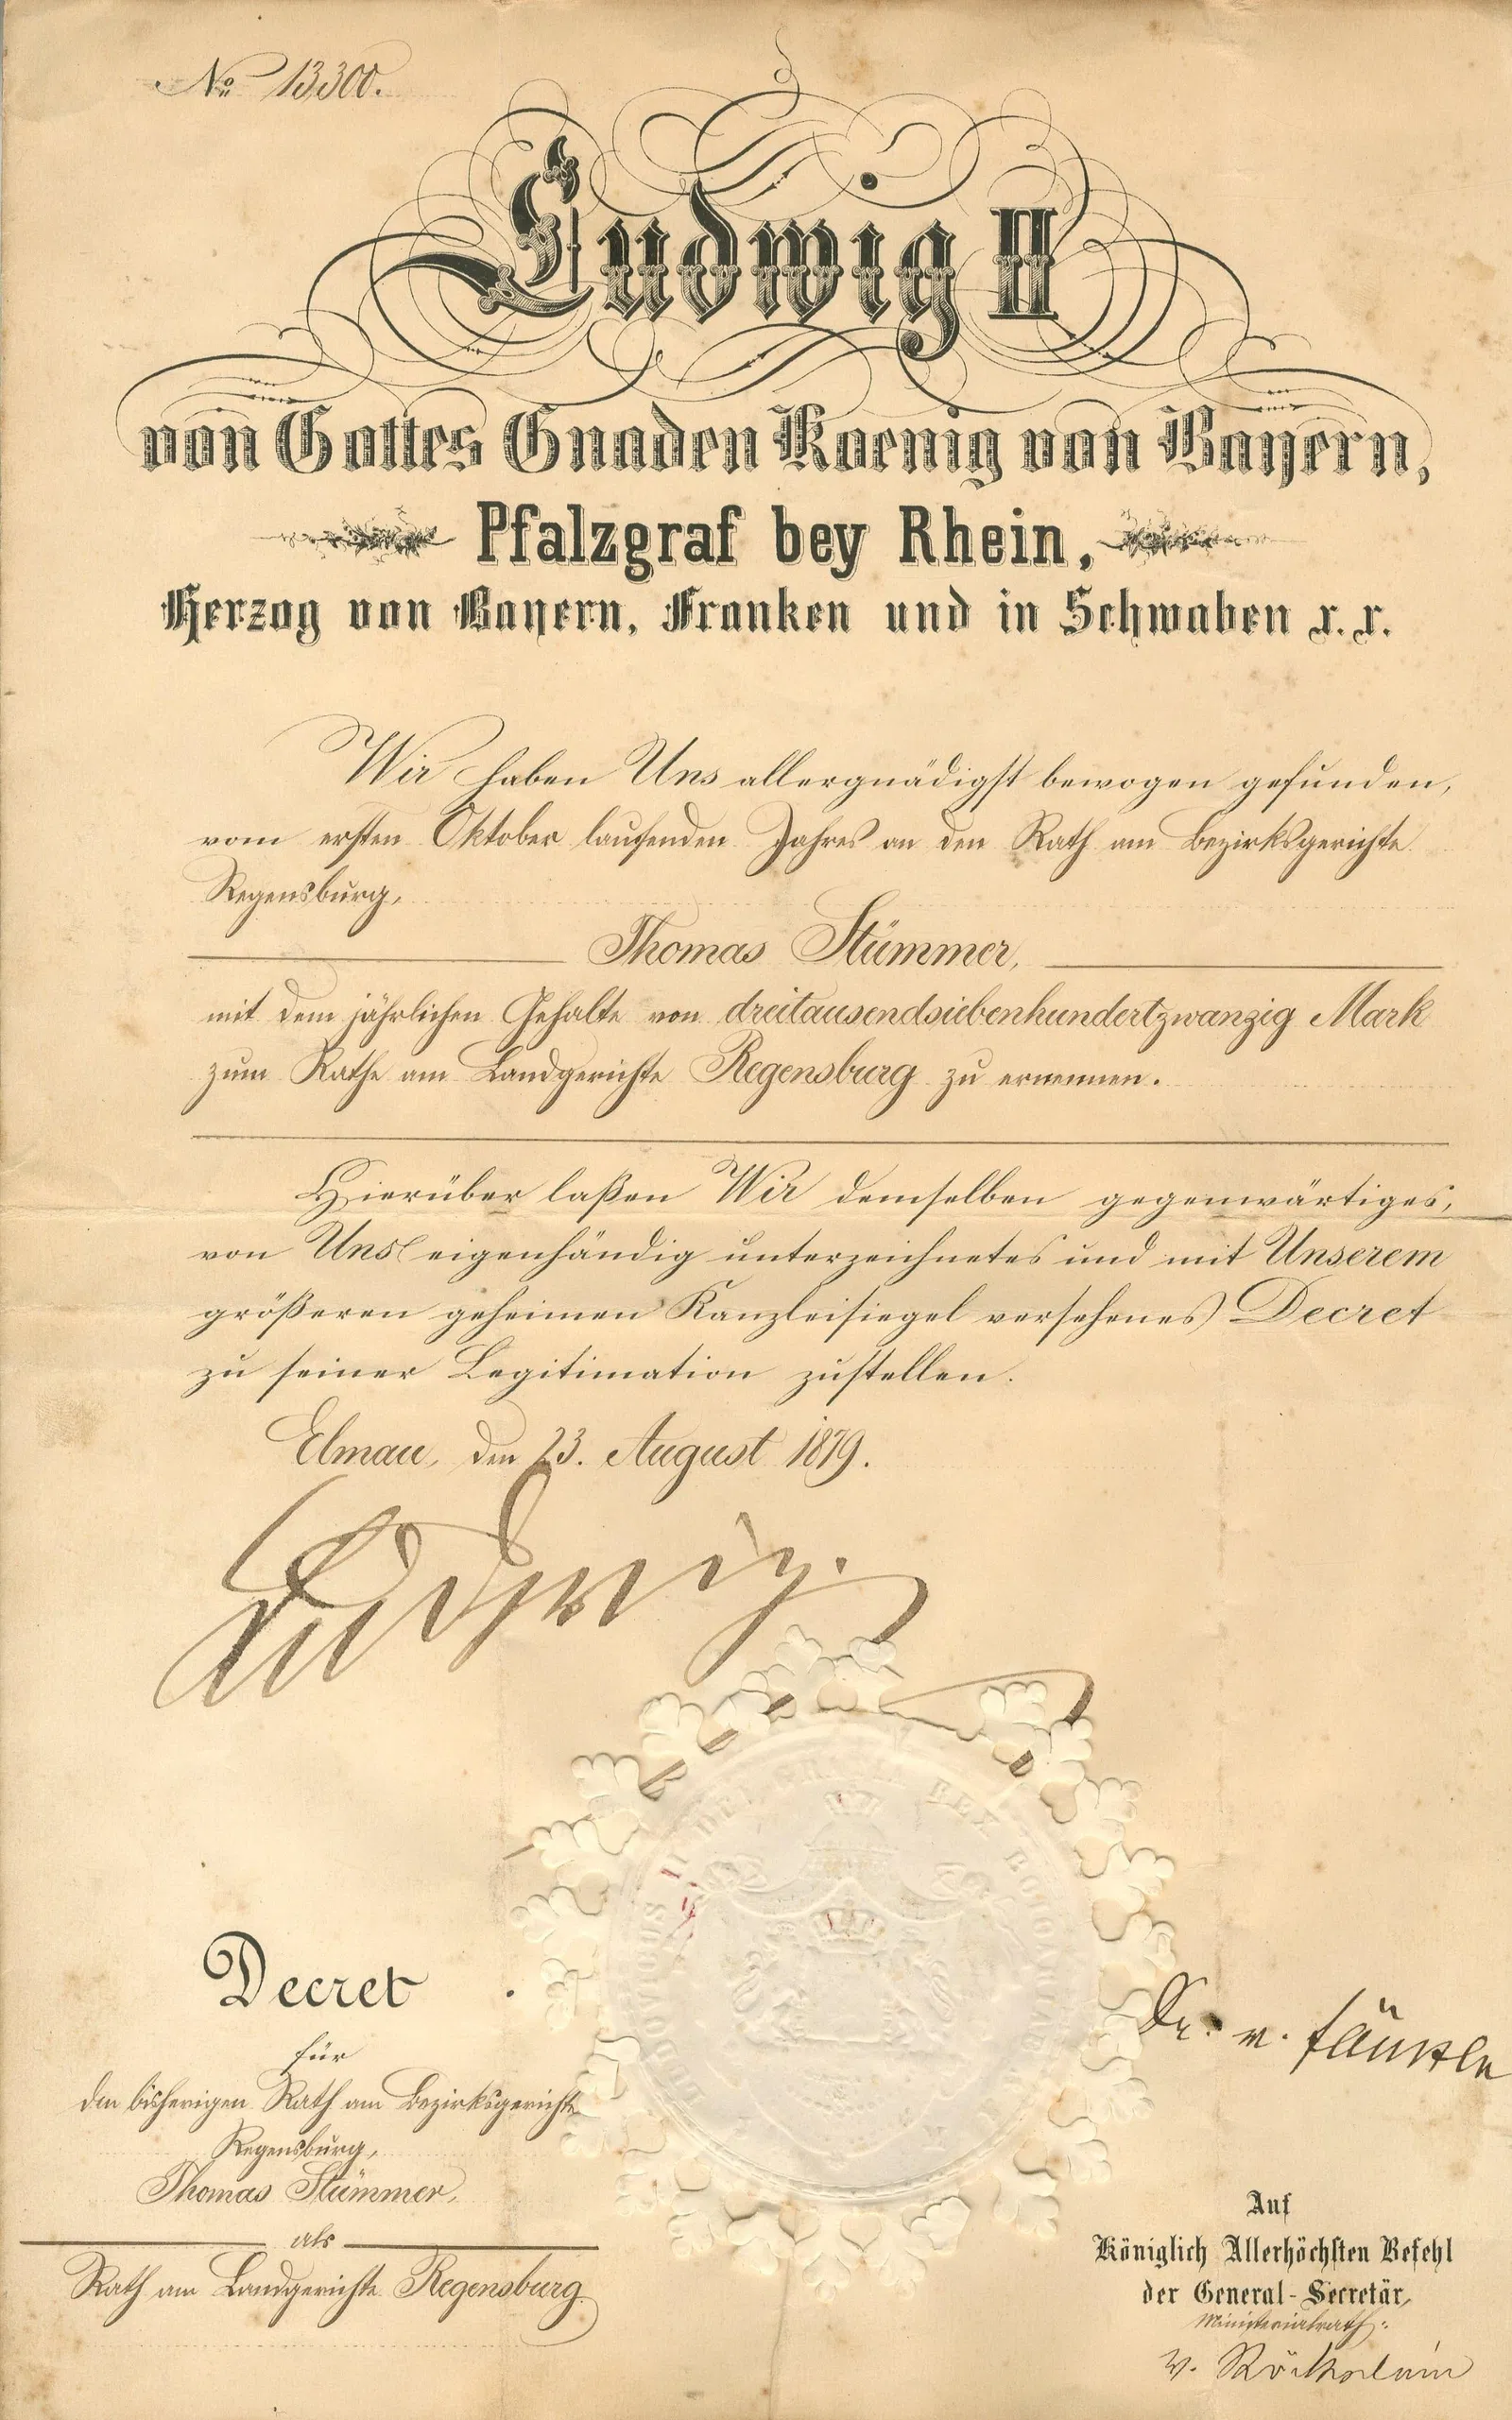 No 13300.
Ludwig II
von Gottes Gnaden Koenig von Bayern,
Pfalzgraf bey Rhein,
Herzog von Bayern, Franken und in Schwaben r. r.
Wir haben Uns allergnädigst bewogen gefunden,
vom ersten Oktober laufenden Jahres an den Rath am Bezirksgerichte
Regensburg,
Thomas Stümmer,
mit dem jährlichen Gehalte von dreitausendsiebenhundertzwanzig Mark
zum Rathe am Landgerichte Regensburg zu ernennen.
Hierüber laßen Wir demselben gegenwärtiges,
von Uns eigenhändig unterzeichnetes und mit Unserem
größeren geheimen Kanzleisiegel versehenes Decret
zu seiner Legitimation zustellen.
Elmau, den 23. August 1879.
Ludwig.
LUDOVICUS II DEI GRATIA REX
Decret
für
den bisherigen Rath am Bezirksgerichte
Regensburg,
Thomas Stümmer,
als
Rath am Landgerichte Regensburg.
Dr. v. Fäustle
Auf
Königlich Allerhöchsten Befehl
der General-Secretär,
Ministerialrath:
v.